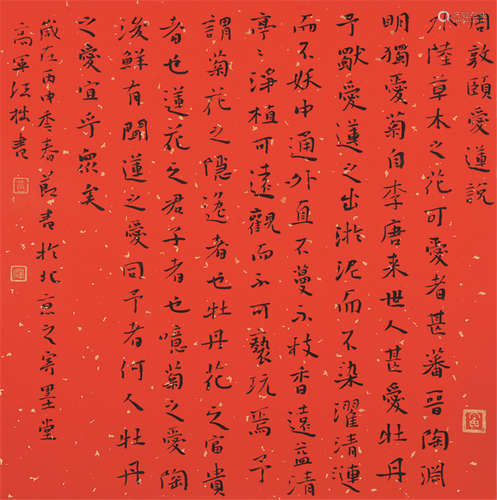 周敦頤愛蓮説
水陸草木之花可愛者甚蕃晉陶淵
明獨愛菊自李唐来世人甚愛牡丹
予獨愛蓮之出淤泥而不染濯清漣
而不妖中通外直不蔓不枝香遠益清
亭亭淨植可遠觀而不可褻玩焉予
謂菊花之隱逸者也牡丹花之富貴
者也蓮花之君子者也噫菊之愛陶
後鮮有聞蓮之愛同予者何人牡丹
之愛宜乎衆矣
歲在丙申春節書於北京之寄墨堂
高軍拙書